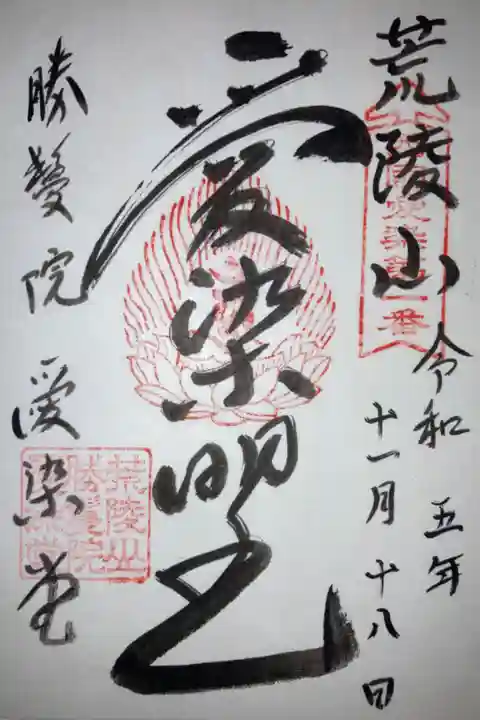 荒陵山
令和五年
十一月十八日
愛染明王
勝鬘院愛染堂
荒陵山
勝鬘院
愛染堂